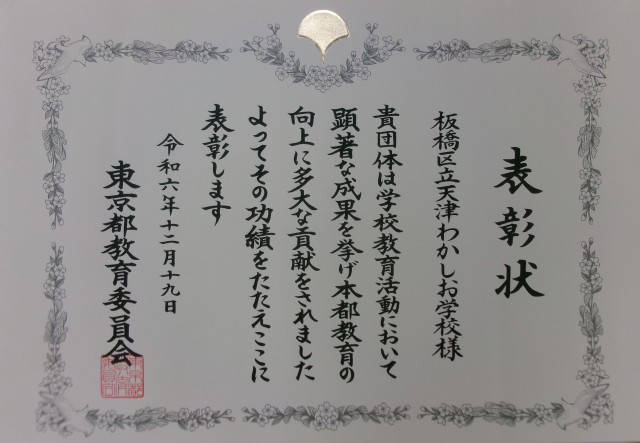 表彰状
板橋区立天津わかしお学校様
貴団体は学校教育活動において
顕著な成果を挙げ本都教育の
向上に多大な貢献をされました
よってその功績をたたえここに
表彰します
令和六年十二月十九日
東京都教育委員会